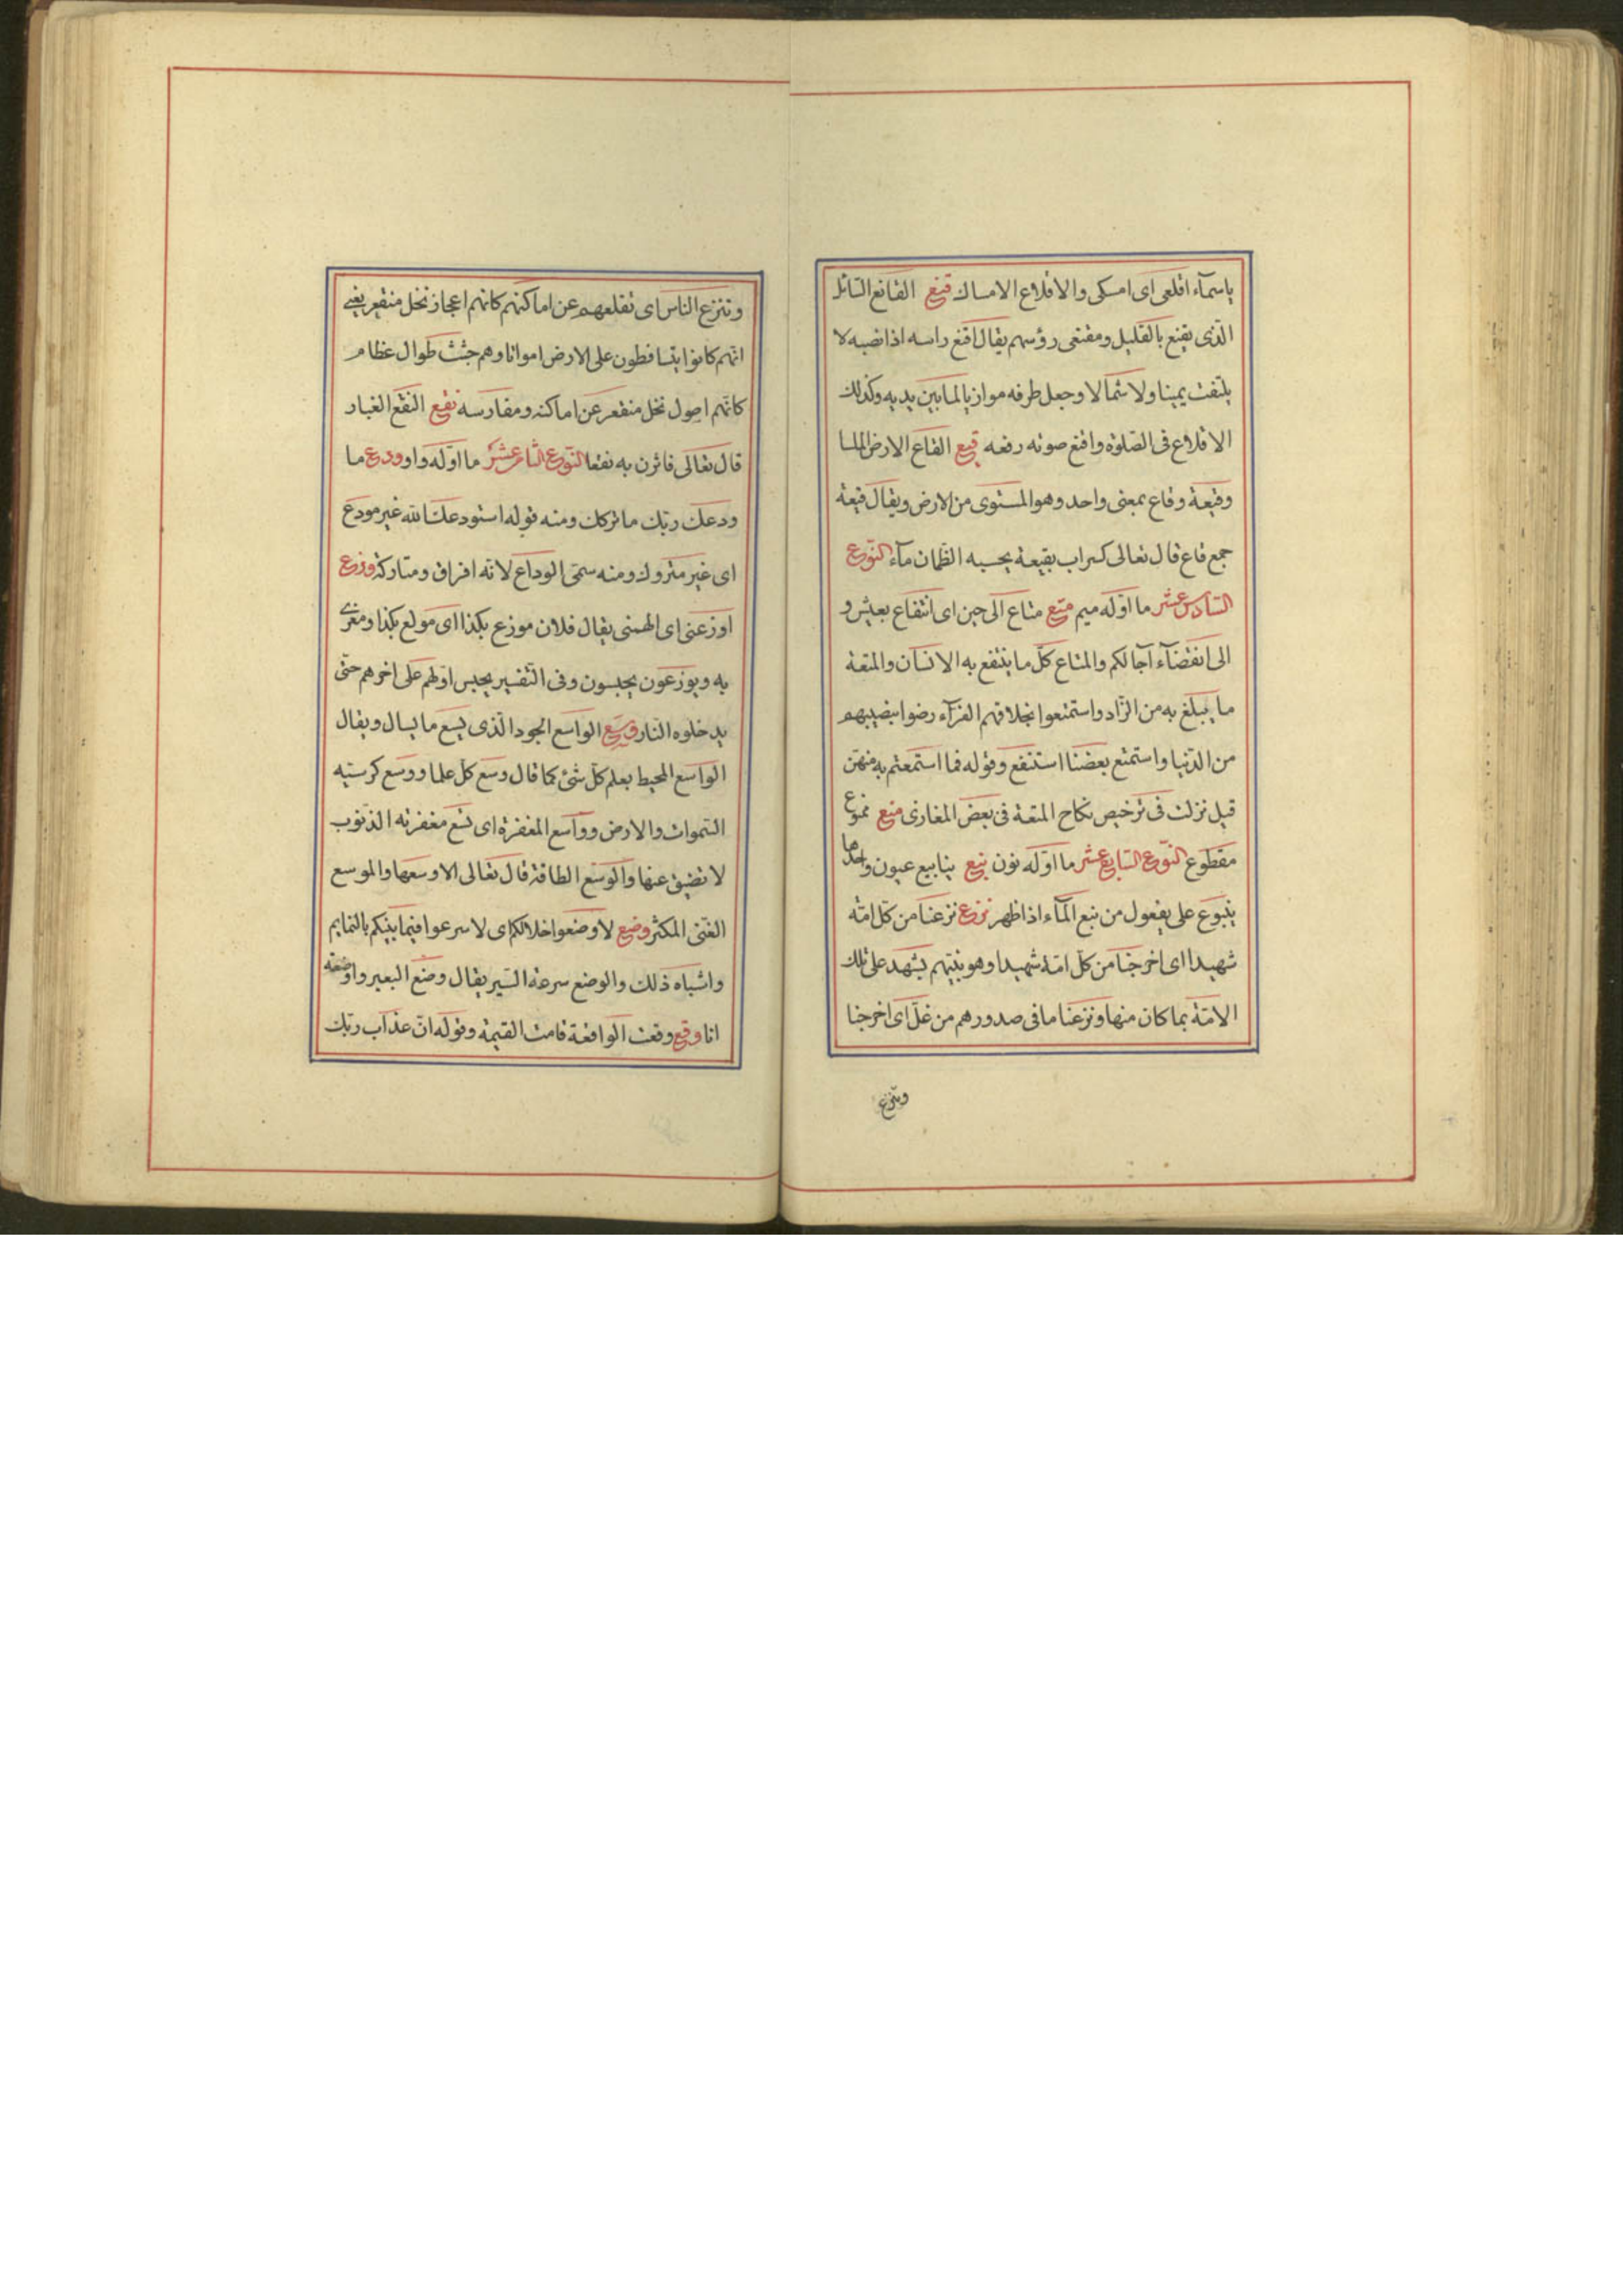 ياسمآء اقلعى اى امسكى والاقلاع الامساك قنع القانع السائل
الّذى يقنع بالقليل ومقنعى رؤسهم يقال اقنع راسه اذا نصبه لا
يلتفت يمينا ولا شمالا وجعل طرفه موازيا لما بين يديه وكذلك
الاقلاع فى الصّلوة واقنع صوته رفعه قيع القاع الارض الملسا
وقيعة وقاع بمعنى واحد وهو المستوى من الارض ويقال قيعة
جمع قاع قال تعالى كسراب بقيعة يحسبه الظمان مآء النّوع
السّادس عشر ما اوّله ميم متع متاع الى حين اى انتفاع بعيش و
الى انقضآء آجالكم والمتاع كلّ ما ينتفع به الانسان والمتعة
ما يبلغ به من الزّاد واستمتعوا بخلاقهم الفرّآء رضوا بنصيبهم
من الدّنيا واستمتع بعضنا استنفع وقوله فما استمتعتم به منهنّ
قيل نزلت فى ترخيص نكاح المتعة فى بعض المغازى منع ممنوع
مقطوع النّوع السّابع عشر ما اوّله نون نبع ينابيع عيون واحدها
ينبوع على يفعول من نبع المآء اذا ظهر نزع نزعنا من كلّ امّة
شهيدا اى اخرجنا من كلّ امّة شهيدا وهو نبيّهم يشهد على تلك
الامّة بما كان منها ونزعنا ما فى صدورهم من غلّ اى اخرجنا
وتنزع
وتنزع الناس اى تقلعهم عن اماكنهم كانهم اعجاز نخل منقعر يعنى
انّهم كانوا يتساقطون على الارض امواتا وهم جثث طوال عظام
كانّهم اصول نخل منقعر عن اماكنه ومغارسه نقع النقع الغبار
قال تعالى فاثرن به نقعا النّوع الثامن عشر ما اوّله واو ودع ما
ودعك ربّك ما تركك ومنه قوله استودعك الله غير مودع
اى غير متروك ومنه سمّى الوداع لانّه افراق ومتاركة وزع
اوزعنى اى الهمنى يقال فلان موزع بكذا اى مولع بكذا ومغرى
به ويوزعون يحبسون وفى التّفسير يحبس اوّلهم على اخرهم حتّى
يدخلوه النّار وسع الواسع الجود الّذى يسع ما يسال ويقال
الواسع المحيط بعلم كلّ شئ كما قال وسع كلّ علما ووسع كرسيّه
السّموات والارض وواسع المغفرة اى تسع مغفرته الذّنوب
لا تضيق عنها والوسع الطاقة قال تعالى الا وسعها والموسع
الغنّى المكثر وضع لاوضعوا خلالكم اى لاسرعوا فيما بينكم بالنمايم
واشباه ذلك والوضع سرعة السّير يقال وضع البعير واوضعته
انا وقع وقعت الواقعة قامت القيمة وقوله انّ عذاب ربّك